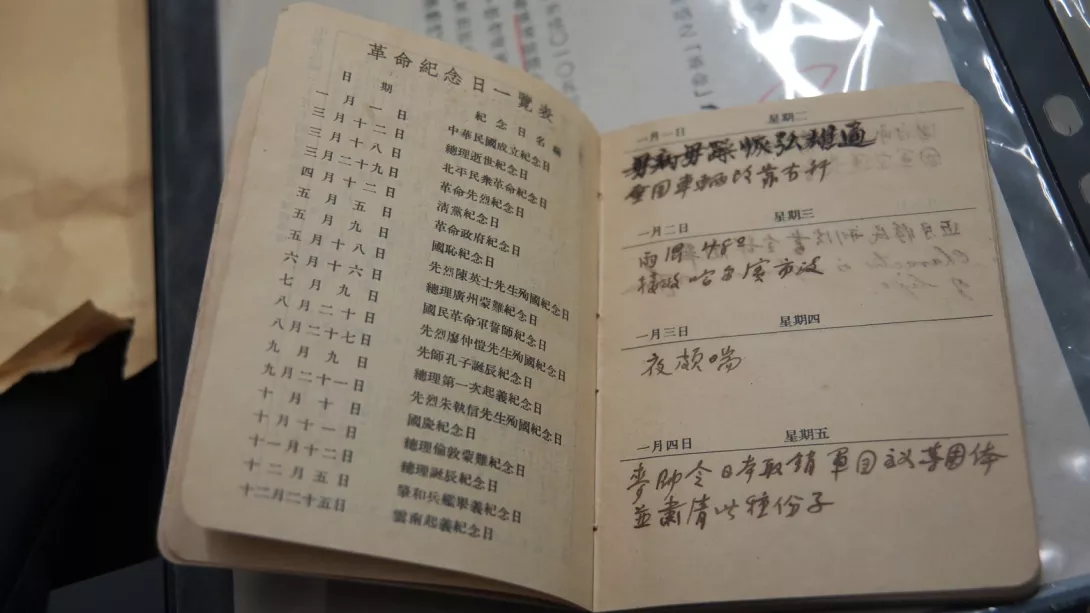 革命紀念日一覽表
日期 紀念日名稱
一月一日 中華民國成立紀念日
三月十二日 總理逝世紀念日
三月十八日 北平民衆革命紀念日
三月二十九日 革命先烈紀念日
四月十二日 清黨紀念日
五月五日 革命政府紀念日
五月九日 國恥紀念日
五月十八日 先烈陳英士先生殉國紀念日
六月十六日 總理廣州蒙難紀念日
七月九日 國民革命軍誓師紀念日
八月二十日 先烈廖仲愷先生殉國紀念日
八月二十七日 先師孔子誕辰紀念日
九月九日 總理第一次起義紀念日
九月二十一日 先烈朱執信先生殉國紀念日
十月十日 國慶紀念日
十月十一日 總理倫敦蒙難紀念日
十一月十二日 總理誕辰紀念日
十二月五日 肇和兵艦舉義紀念日
十二月二十五日 雲南起義紀念日
一月一日 星期二
全国車輛改靠右行
一月二日 星期三
接收哈尔濱市政
一月三日 星期四
夜頗喘
一月四日 星期五
麥帥令日本取銷軍国主义等團体
並肅清此種份子